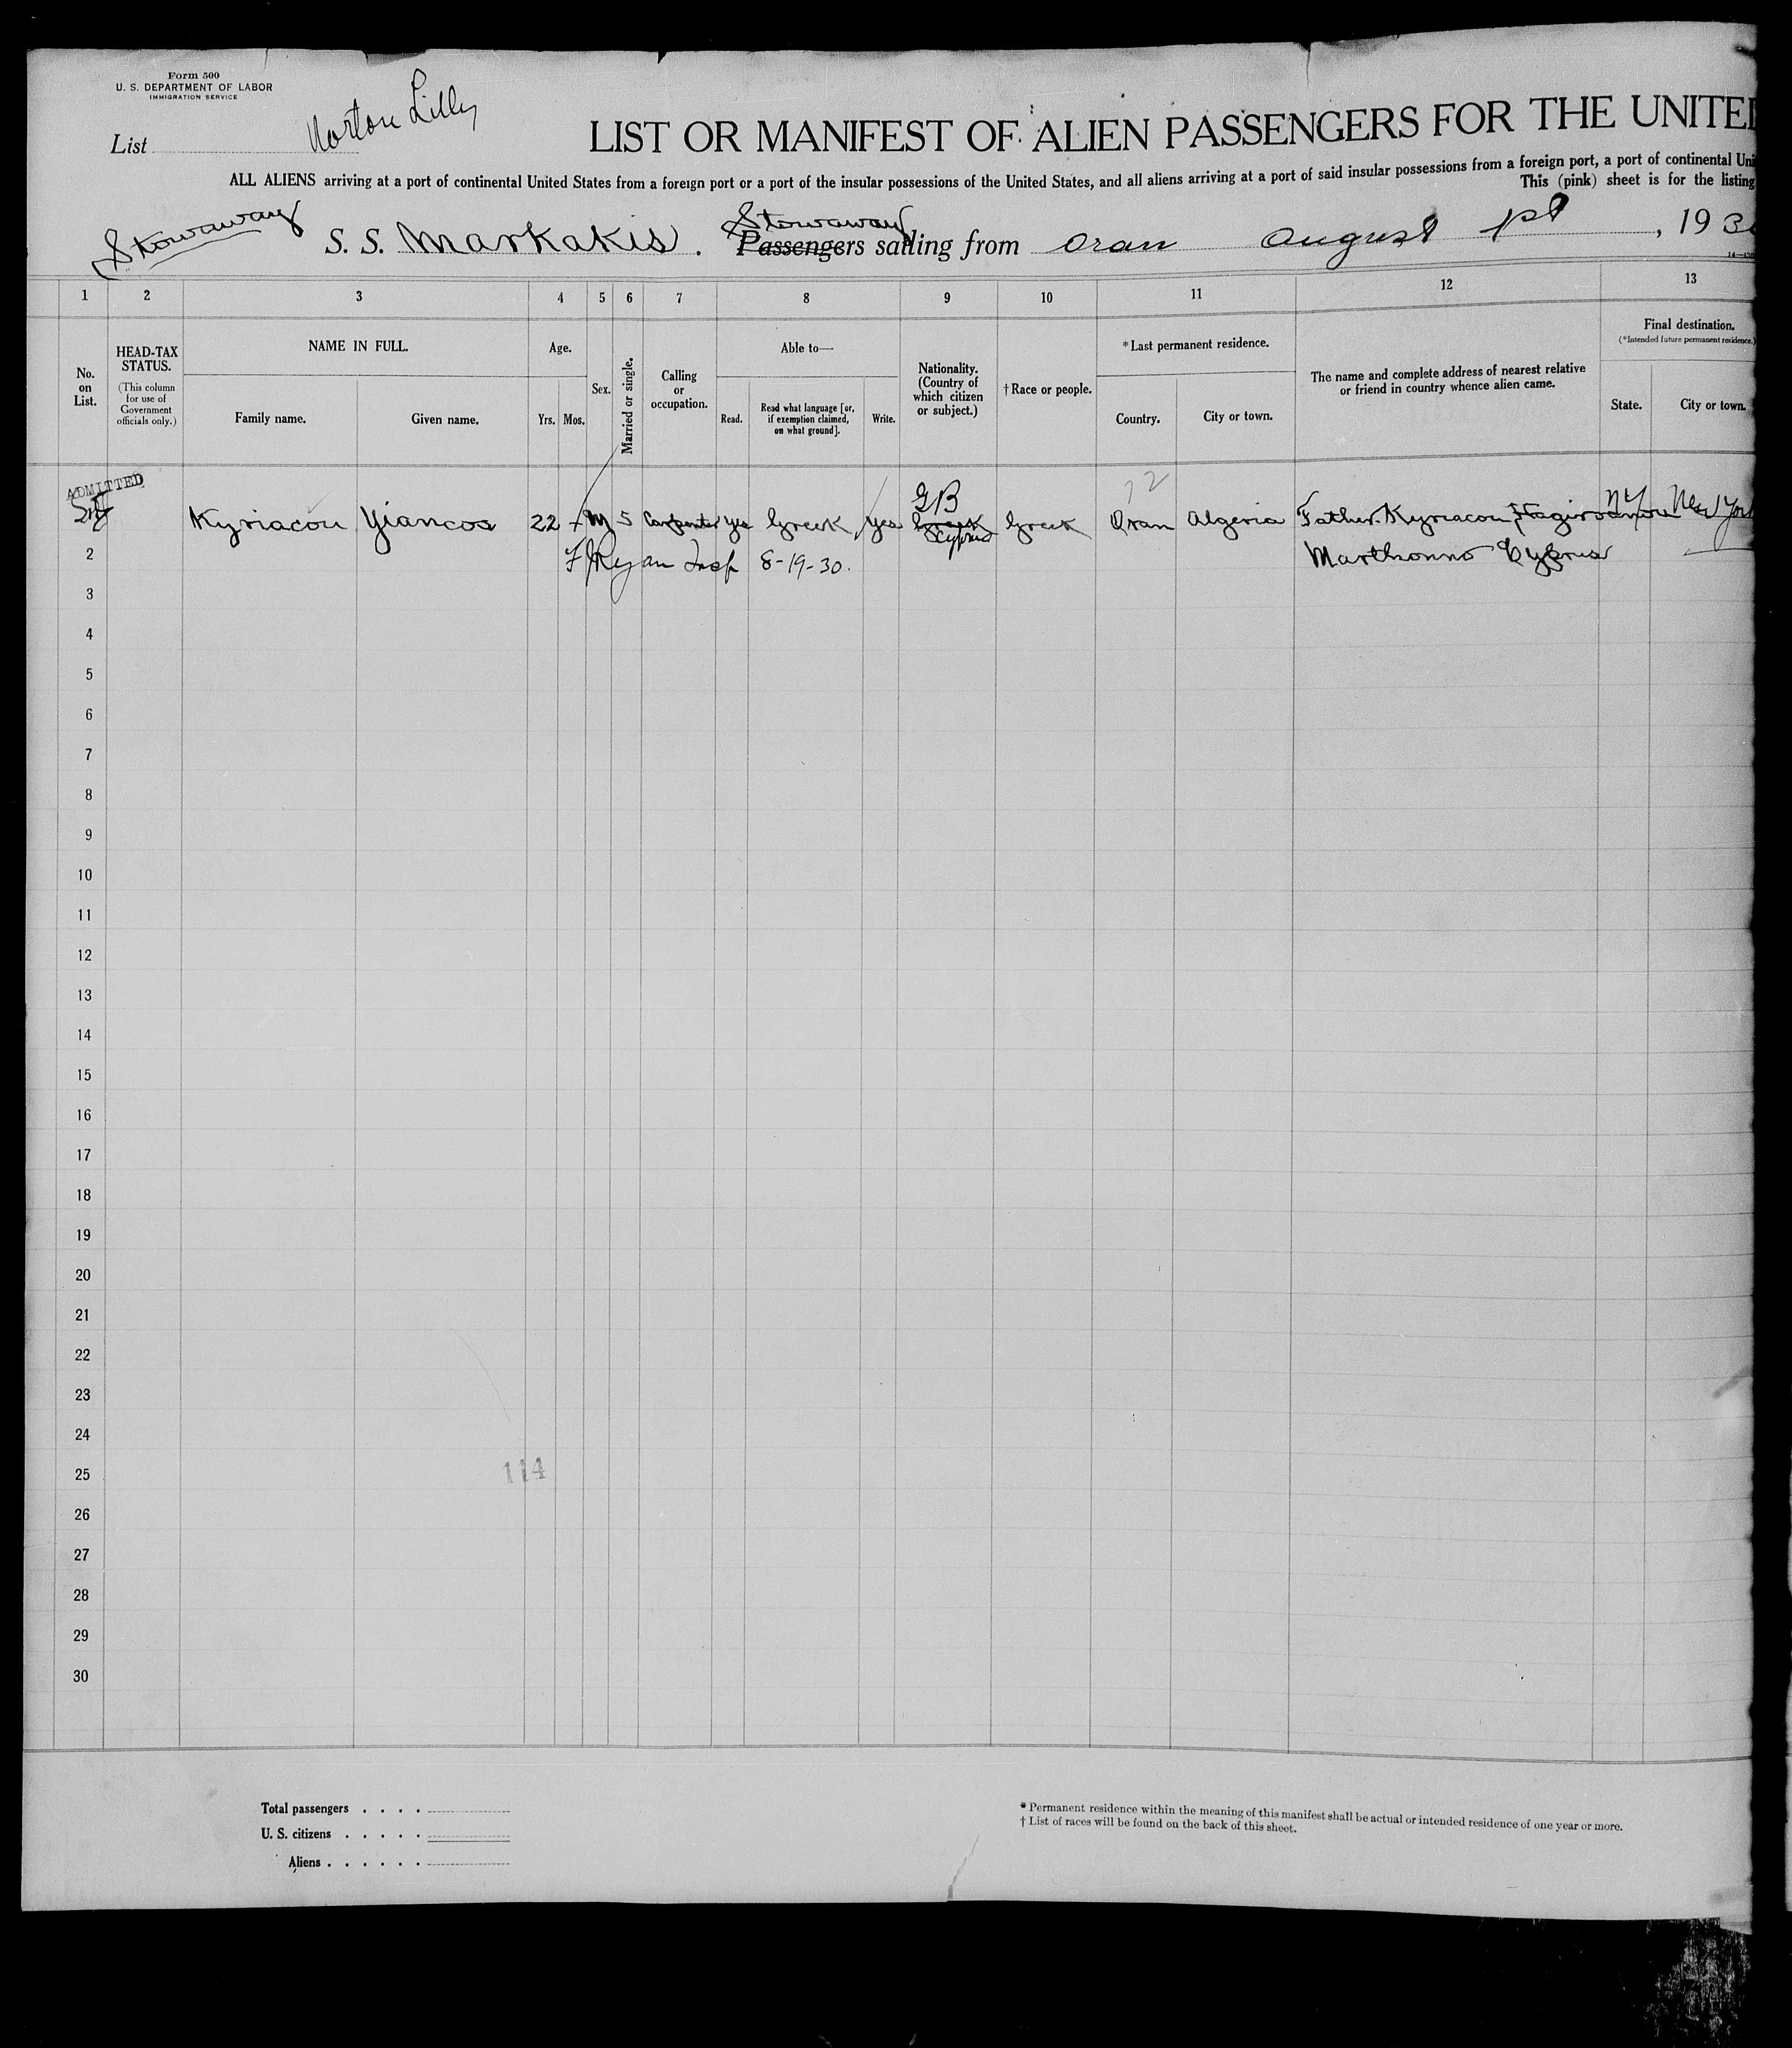 Form 500
U. S. DEPARTMENT OF LABOR
IMMIGRATION SERVICE
List
Norton Lilly
LIST OR MANIFEST OF ALIEN PASSENGERS FOR THE UNITE
ALL ALIENS arriving at a port of continental United States from a foreign port or a port of the insular possessions of the United States, and all aliens arriving at a port of said insular possessions from a foreign port, a port of continental Uni
This (pink) sheet is for the listing
Stowaway
S. S. Markakis. Passengers sailing from Oran August 1st, 193
Stowaway
1 2 3 4 5 6 7 8 9 10 11 12 13
No. on List.
HEAD-TAX STATUS.
(This column for use of Government officials only.)
NAME IN FULL.
Family name. Given name.
Age.
Yrs. Mos.
Sex.
Married or single.
Calling or occupation.
Able to—
Read. Read what language [or, if exemption claimed, on what ground]. Write.
Nationality. (Country of which citizen or subject.)
† Race or people.
* Last permanent residence.
Country. City or town.
The name and complete address of nearest relative or friend in country whence alien came.
Final destination.
(* Intended future permanent residence.)
State. City or town.
ADMITTED
12
GB
Kyriacou Yiancos 22 M S Carpenter yes Greek yes Greek Greek Oran Algeria Father Kyriacou NY New York
Cyprus
2 F J Ryan Insp 8-19-30. Marthonno Cyprus
3
4
5
6
7
8
9
10
11
12
13
14
15
16
17
18
19
20
21
22
23
24
25
114
26
27
28
29
30
Total passengers . . . .
U. S. citizens . . . . .
Aliens . . . . . .
* Permanent residence within the meaning of this manifest shall be actual or intended residence of one year or more.
† List of races will be found on the back of this sheet.